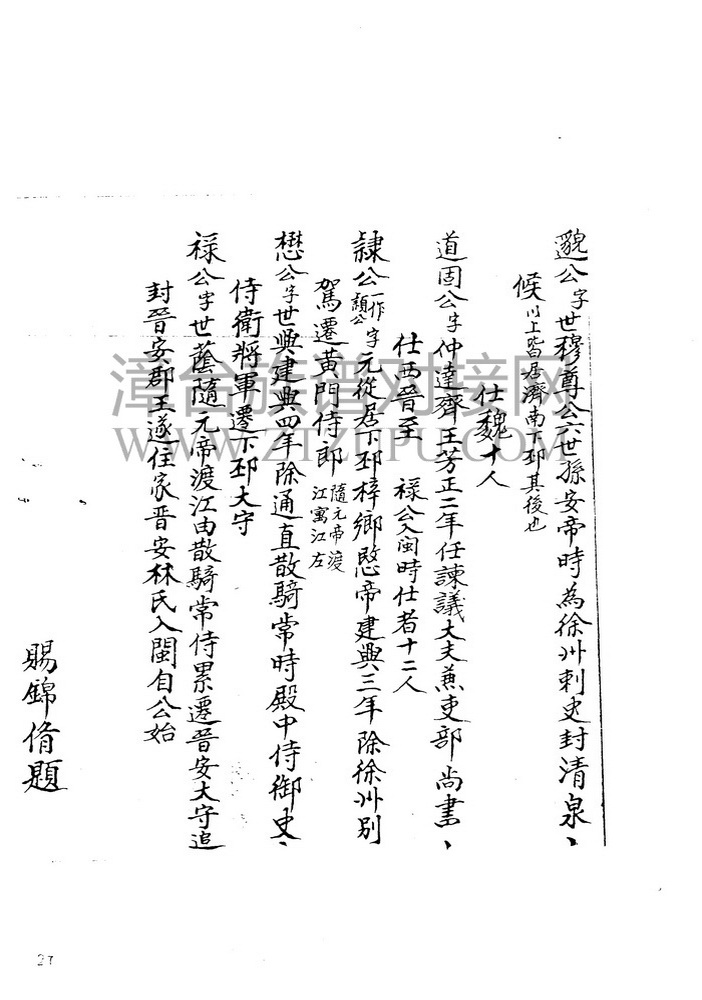 邈公字世穆尊公六世孫安帝時為徐州刺史封清泉、
候以上皆居濟南下邳其後也
仕魏十人
道固公字仲達齊王芳正二年任諫議大夫兼吏部尚書、
仕西晉至 祿公入閩時仕者十二人
隸公一作顗公字元從居下邳梓鄉愍帝建興三年除徐州別
駕遷黃門侍郎隨元帝渡江寓江左
懋公字世興建興四年除通直散騎常時殿中侍御史、
侍衛將軍遷下邳大守
祿公字世蔭隨元帝渡江由散騎常侍累遷晉安大守追
封晉安郡王遂住家晉安林氏入閩自公始
賜錦脩題
27
漳台族谱对接网
WWW.ZTZUPU.COM